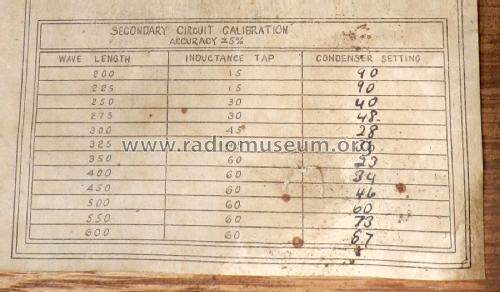 SECONDARY CIRCUIT CALIBRATION
ACCURACY ±5%
WAVE LENGTH INDUCTANCE TAP CONDENSER SETTING
200 15 90
225 15 90
250 30 40
275 30 48
300 45 28
325
www.radiomuseum.org
350 60 23
400 60 34
450 60 46
500 60 60
550 60 73
600 60 87